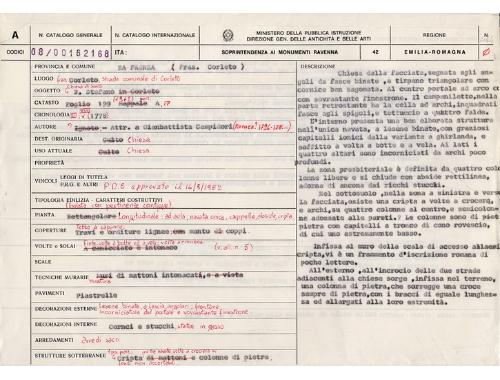 A
N. CATALOGO GENERALE
N. CATALOGO INTERNAZIONALE
MINISTERO DELLA PUBBLICA ISTRUZIONE
DIREZIONE GEN. DELLE ANTICHITÀ E BELLE ARTI
REGIONE
N.
CODICI
08/00152168
ITA:
SOPRINTENDENZA AI MONUMENTI RAVENNA
42
EMILIA-ROMAGNA
PROVINCIA E COMUNE RA FAENZA (Fraz. Corleto)
LUOGO Corleto, strada comunale di Corleto
OGGETTO S. Stefano in Corleto
CATASTO Foglio 199 Mappale A
CRONOLOGIA (1778)
AUTORE Ignoto - Attr. a Giambattista Campidori
DEST. ORIGINARIA Culto Chiesa
USO ATTUALE Culto Chiesa
PROPRIETÀ
VINCOLI LEGGI DI TUTELA
P.R.G. E ALTRI
TIPOLOGIA EDILIZIA - CARATTERI COSTRUTTIVI
PIANTA Rettangolare
COPERTURE Travi e orditure lignee con manto di coppi.
VOLTE o SOLAI
SCALE
TECNICHE MURARIE Muri di mattoni intonacati, e a vista
PAVIMENTI
Piastrelle
DECORAZIONI ESTERNE
DECORAZIONI INTERNE Cornci e stucchi, statue in gesso
ARREDAMENTI Arredi sacri
STRUTTURE SOTTERRANEE Cripta di mattoni e colonne di pietra.
DESCRIZIONE
Chiesa dalla facciata, segnata agli an-
goli da fasce binate, a timpano triangolare con
cornice ben sagomata. Al centro portale ad arco
con sovrastante finestrone. Il campaniletto, nella
parte retrostante ha la cella ad archi, inquadrati
fasce agli spigoli, e tettuccio a quattro falde.
L'interno presenta una ben elborata struttura
nell'unica navata, a lesene binate, con graziosi
capitelli ionici dalla variante a ghirlande, e
soffitto a volta a botte e a vela. Ai lati i
quattro altari sono incorniciati da archi poco
profondi.
La zona presbiteriale è definita da quattro colo
lonne libere e si chiude con abside rettilinea,
adorna di ancona dai ricchi stucchi.
Nel sottosuolo, nella zona a sinistra e verso
la facciata, esiste una cripta a volte a crocera,
e archi, su quattro colonne al centro, e semicolon
ne addossate alle pareti. Le colonne sono di pietra
pietra con capitelli a tronco di cono rovescio,
di cui uno estremamente basso.
Infissa al muro della scala di accesso alla
cripta, vi è un frammento d'iscrizione romana di
poche lettere.
All'esterno, all'incrocio delle due strade
adiacenti alla chiesa sorge, infissa nel terreno,
una colonna di pietra, che sorregge una croce
sempre di pietra, con i bracci di eguale lunghez-
za ed allargati alla loro estremità.